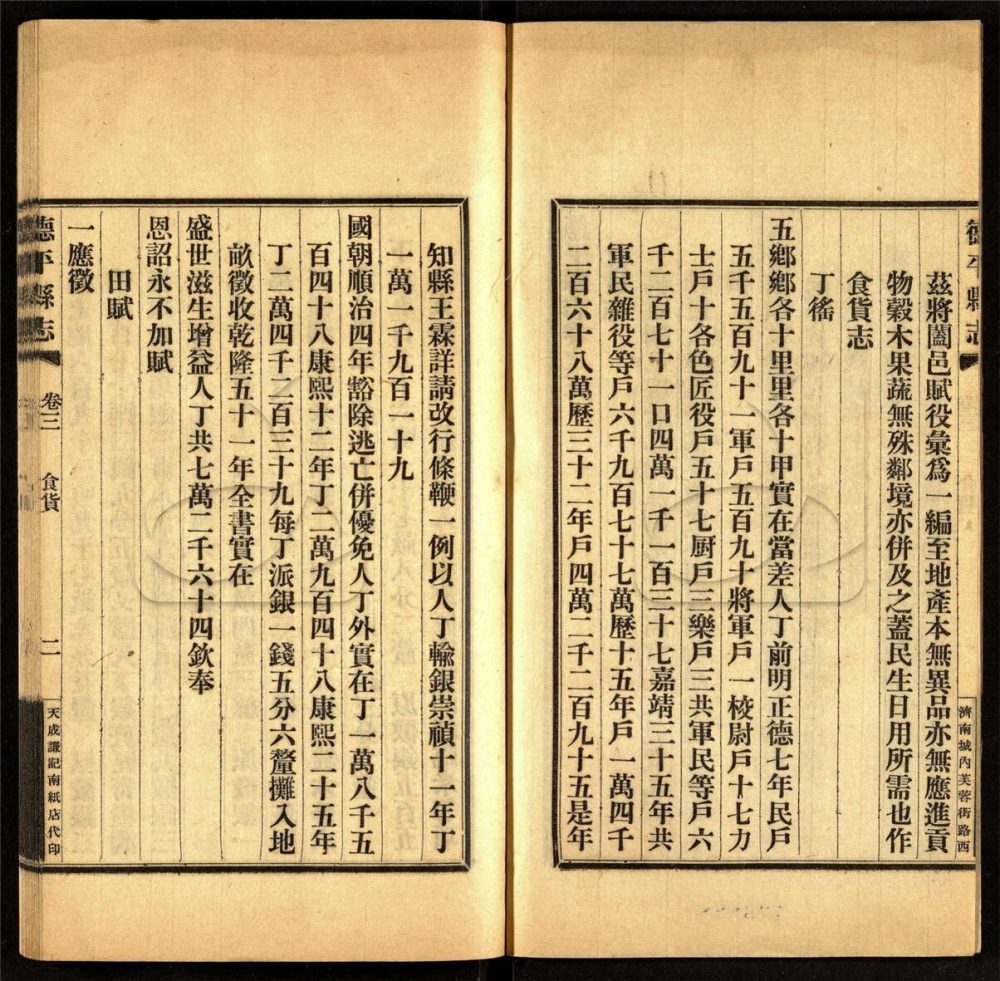 德平縣志
濟南城內芙蓉街路西
茲將闔邑賦役彙爲一編至地產本無異品亦無應進貢
物穀木果蔬無殊鄰境亦併及之蓋民生日用所需也作
食貨志
丁徭
五鄉鄉各十里里各十甲實在當差人丁前明正德七年民戶
五千五百九十一軍戶五百九十將軍戶一校尉戶十七力
士戶十各色匠役戶五十七厨戶三樂戶三共軍民等戶六
千二百七十一口四萬一千一百三十七嘉靖三十五年共
軍民雜役等戶六千九百七十七萬歷十五年戶一萬四千
二百六十八萬歷三十二年戶四萬二千二百九十五是年
知縣王霖詳請改行條鞭一例以人丁輸銀崇禎十一年丁
一萬一千九百一十九
國朝順治四年豁除逃亡併優免人丁外實在丁一萬八千五
百四十八康熙十二年丁二萬九百四十八康熙二十五年
丁二萬四千二百三十九每丁派銀一錢五分六釐攤入地
畝徵收乾隆五十一年全書實在
盛世滋生增益人丁共七萬二千六十四欽奉
恩詔永不加賦
田賦
一應徵
德平縣志 卷三 食貨 二
天成謙記南紙店代印